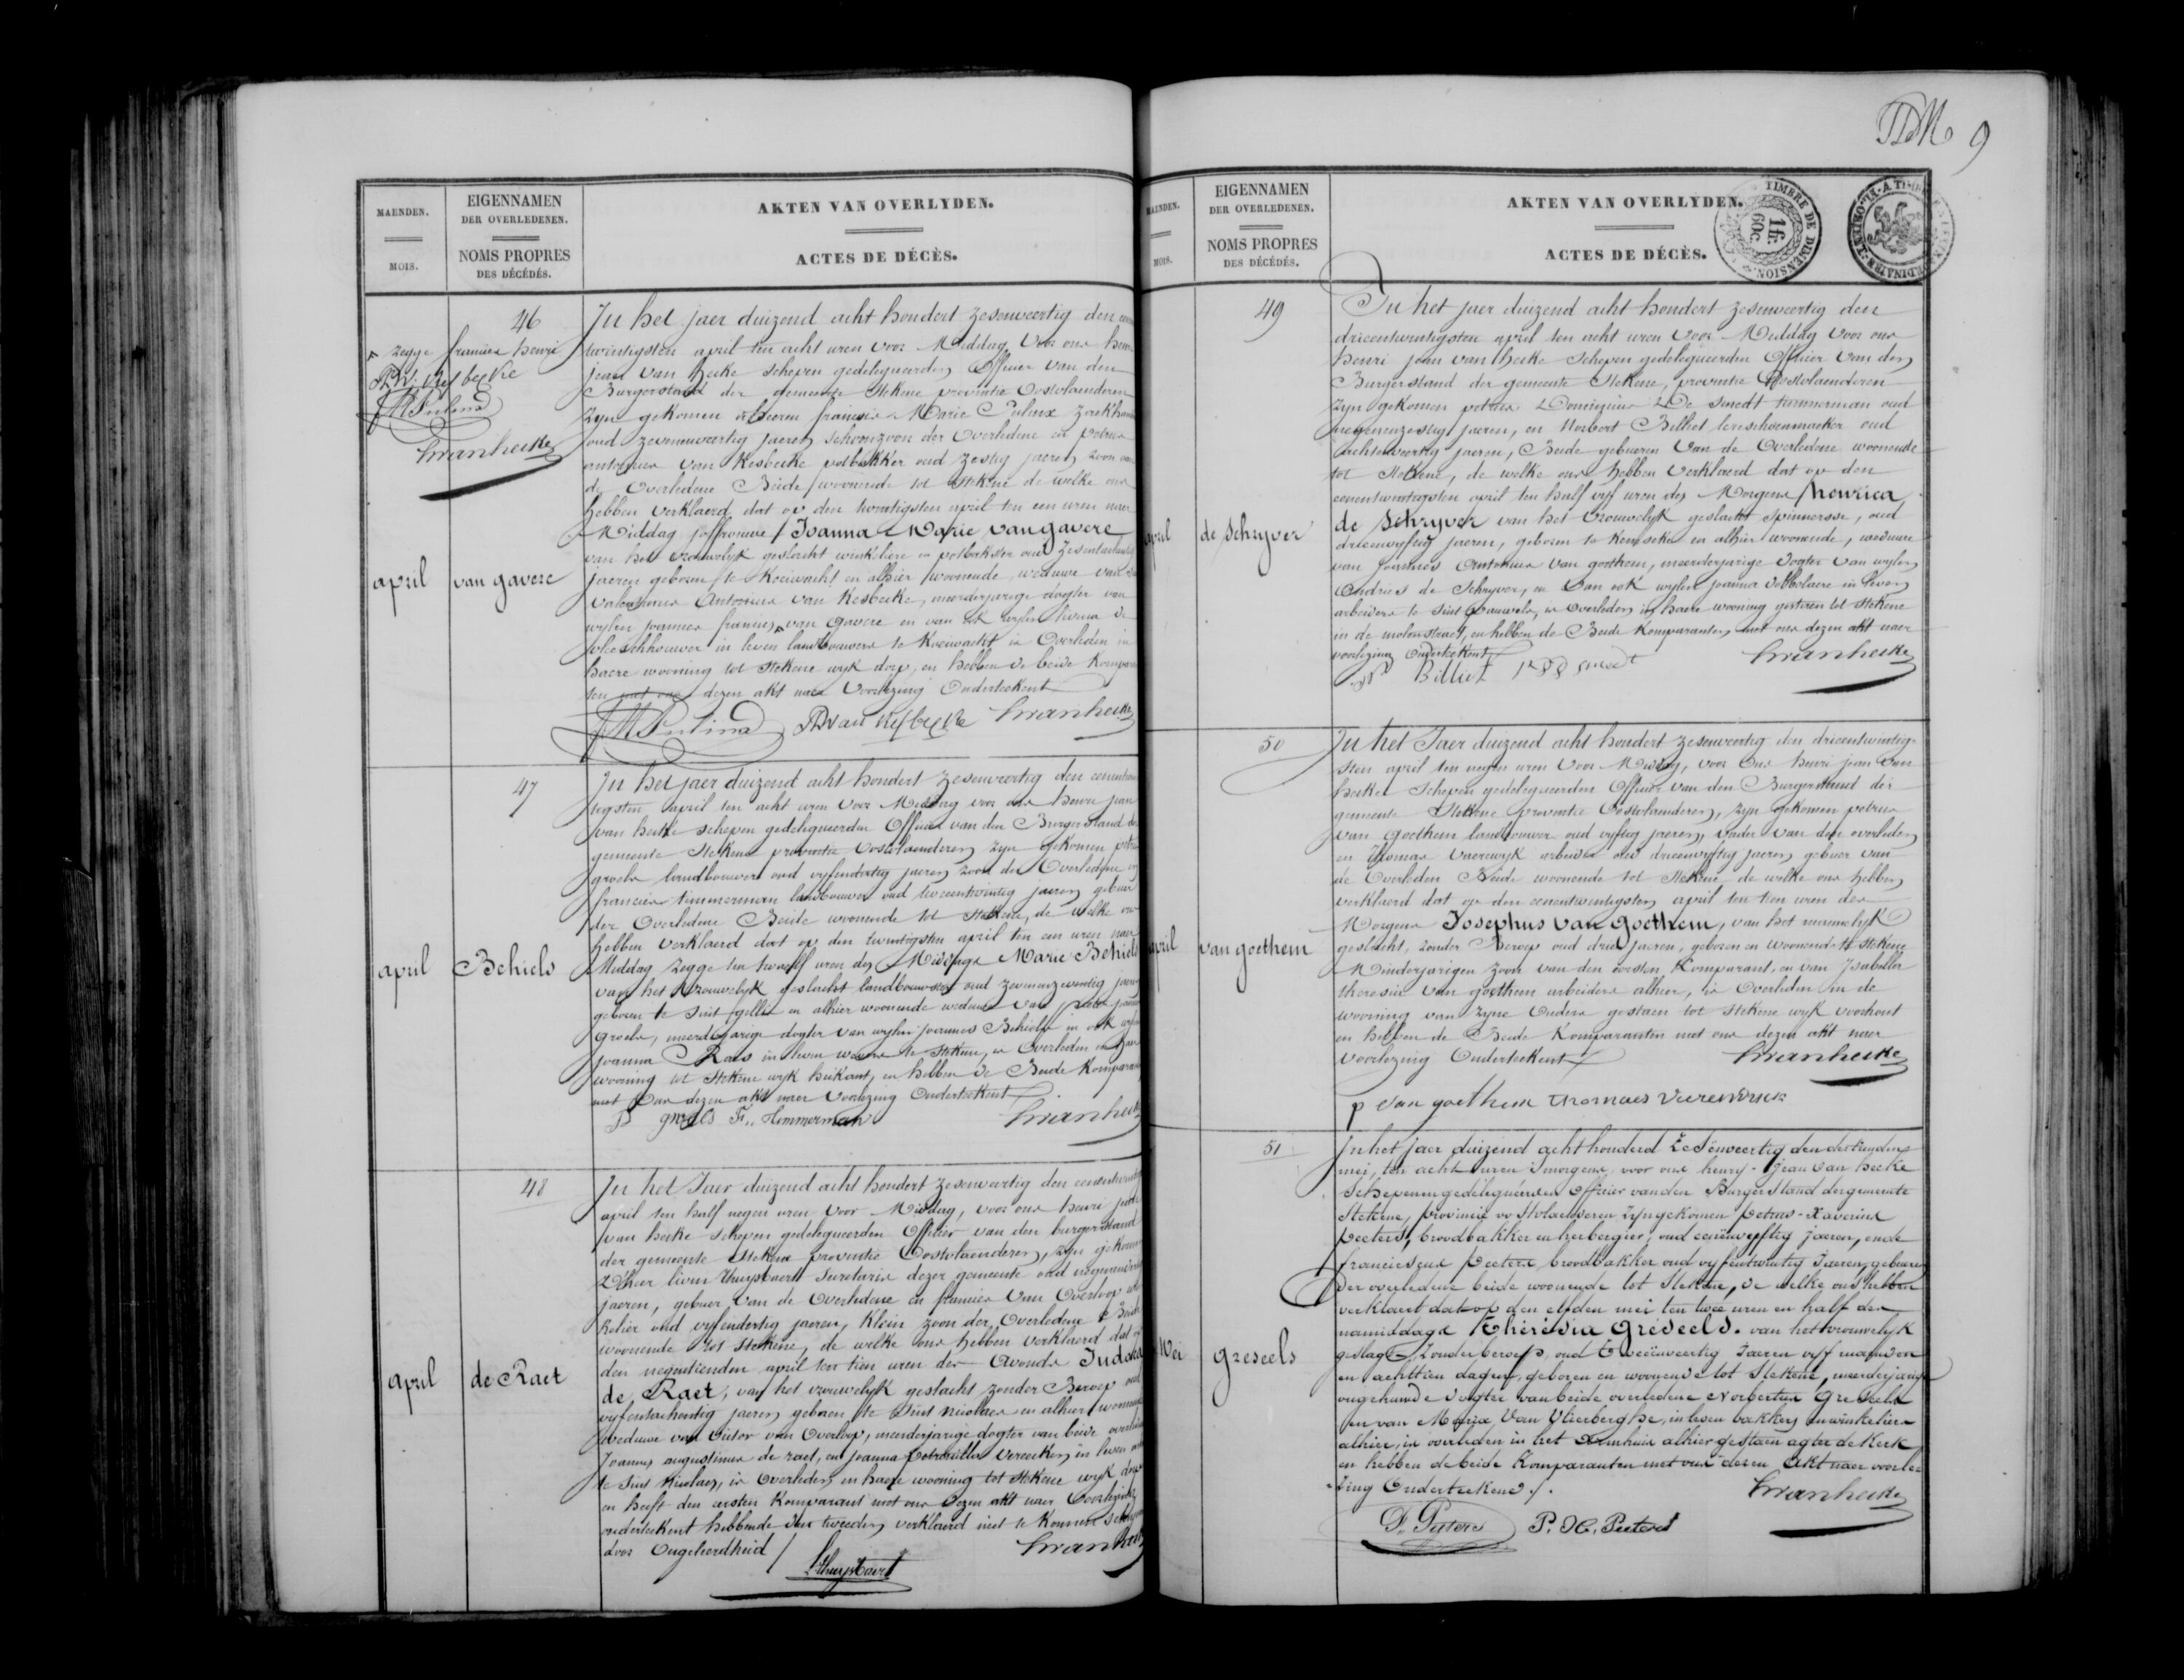 MAENDEN.
MOIS.
EIGENNAMEN
DER OVERLEDENEN.
NOMS PROPRES
DES DÉCÉDÉS.
AKTEN VAN OVERLYDEN.
ACTES DE DÉCÈS.
46
zegge francies henri
april
van gavere
In het jaer duizend acht hondert zesenveertig den
twintigsten april ten acht uren voor Middag Voor ons henri
jean van Hecke Schepen gedelegueerden Officier van den
Burgerstand der gemeente Stekene provintie Oostvlaenderen
Zyn gekomen francies Marie
oud zevenenveertig jaeren schoonzoon der Overledene en petrus
antonius van Kesbeeke potbakker oud zestig jaeren zoon van
de Overledene Beide woonende tot Stekene de welke ons
Hebben verklaerd dat op den twintigsten april ten een uren naer
Middag joffrouwe Joanna Marie van gavere
van het vrouwelyk geslacht winkeliere en potbakster oud
jaeren geboren te Koewacht en alhier woonende weduwe van
Antonius van Kesbeeke, meerderjarige dogter van
wylen joannes francies van gavere en van ook wylen
in leven landbouwers te Koewacht is Overleden in
haere wooning tot Stekene wyk dorp, en hebben de beide Kompa
ten met ons dezen akt naer Voorlezing Onderteekent
van Kesbeeke hvanhecke
47
april
Behiels
In het jaer duizend acht hondert zesenveertig den
tigsten april ten acht uren voor Middag voor ons henri jean
van hecke schepen gedelegueerden Officier van den Burgerstand der
gemeente Stekene provintie Oostvlaenderen zyn gekomen
landbouwer oud vyfendertig jaeren zoon der Overledene en
francies timmerman landbouwer oud tweeentwintig jaeren gebuer
der Overledene Beide woonende tot Stekene, de welke ons
Hebben verklaerd dat op den twintigsten april ten een uren naer
Middag zegge ten twaelf uren des Middags Marie Behiels
van het vrouwelyk geslacht landbouwster oud zevenenzeventig jaeren
geboren te Sint gillis en alhier woonende weduwe van
meerderjarige dogter van wylen joannes Behiels en ook wylen
joanna Raes in leven te Stekene, is Overleden in haere
wooning tot Stekene wyk heikant, en hebben de Beide Kompara
met Ons dezen akt naer Voorlezing Onderteekent
Timmerman hvanhecke
48
april
de Raet
In het Jaer duizend acht hondert zesenveertig den
april ten half negen uren voor Middag, voor ons henri jean
van hecke Schepen gedelegueerden Officier van den burgerstand
der gemeente Stekene provintie Oostvlaenderen, zyn gekomen
livin Thuysbaert Secretaris dezer gemeente oud
jaeren, gebuer van de Overledene en francies van Overloop
oud vyfendertig jaeren, Klein zoon der Overledene Beide
woonende tot Stekene, de welke ons hebben verklaerd dat op
den negentienden april ten tien uren des Avonds Judoca
de Raet, van het vrouwelyk geslacht zonder Beroep oud
vyfentachentig jaeren geboren te Sint Nicolaes en alhier woonende
weduwe van van Overloop, meerderjarige dogter van beide overleden
Joannes augustinus de raet, en joanna petronilla Vereecken in leven
te Sint Nicolaes, is Overleden in haere wooning tot Stekene wyk dorp
en heeft den eersten Komparant met ons dezen akt naer Voorlezing
onderteekent hebbende den tweeden verklaerd niet te Konnen schryven
door Ongeleerdheid
Thuysbaert hvanhecke
9
MAENDEN.
MOIS.
EIGENNAMEN
DER OVERLEDENEN.
NOMS PROPRES
DES DÉCÉDÉS.
AKTEN VAN OVERLYDEN.
ACTES DE DÉCÈS.
TIMBRE DE DIMENSION
1 fr.
60c.
49
april
de Schryver
In het jaer duizend acht hondert zesenveertig den
drieentwintigsten april ten acht uren voor Middag Voor ons
henri jean van Hecke Schepen gedelegueerden Officier van den
Burgerstand der gemeente Stekene, provintie Oostvlaenderen
zyn gekomen petrus Dominicus De Smedt timmerman oud
negenenzestig jaeren, en Norbert Billiet leverschoenmaeker oud
achtenveertig jaeren, Beide gebueren van de Overledene woonende
tot Stekene, de welke ons hebben verklaerd dat op den
eenentwintigsten april ten half vyf uren des Morgens henrica
de Schryver van het vrouwelyk geslacht spinnersse, oud
drieenvyftig jaeren, geboren te Kemseke en alhier woonende, weduwe
van joannes Antonius van goethem, meerderjarige dogter van wylen
Andries de Schryver, en van ook wylen joanna in leven
arbeiders te Sint pauwels, is Overleden in haere wooning gestaen tot Stekene
in de molenstraet, en hebben de Beide Komparanten met ons dezen akt naer
voorlezing Onderteekent
Billiet P D D Smedt hvanhecke
50
april
van goethem
In het Jaer duizend acht hondert zesenveertig den drieentwintig-
sten april ten negen uren Voor Middag, voor Ons henri jean van
hecke Schepen gedelegueerden Officier van den Burgerstand der
gemeente Stekene provintie Oostvlaenderen, zyn gekomen petrus
van goethem landbouwer oud vyftig jaeren, vader van den overleden
en Thomas Vaerewyk arbeider oud drieenvyftig jaeren gebuer van
de Overleden Beide woonende tot Stekene de welke ons hebben
verklaerd dat op den eenentwintigsten april ten tien uren des
Morgens Josephus van goethem, van het mannelyk
geslacht, zonder Beroep oud drie jaeren, geboren en woonende te Stekene
Minderjarigen zoon van den eersten Komparant, en van Isabella
theresia van goethem arbeiders alhier, is Overleden in de
wooning van zyne Ouders gestaen tot Stekene wyk voorhout
en hebben de Beide Komparanten met ons dezen akt naer
voorlezing Onderteekent hvanhecke
p van goethem Thomaes
51
Mei
greseels
In het jaer duizend acht honderd Zesenveertig den dertienden
mei, ten acht uren smorgens, voor ons henry-jean van hecke
Schepenen gedelegueérden Officier van den Burger Stand der gemeente
Stekene, provincie oostvlaenderen zyn gekomen petrus-Xaverius
peeters, broodbakker en herbergier, oud eenenvyftig jaeren, ende
franciscus Peeters broodbakker oud vyfentwintig Jaeren, gebueren
der overledene beide woonende tot Stekene, de welke ons hebben
verklaert dat op den elfden mei ten twee uren en half des
namiddags Theresia Greseels. van het vrouwelyk
geslagt, zonder beroep, oud tweeënveertig Jaeren vyf maenden
en achttien dagen, geboren en woonende tot Stekene, meerderjarige
ongehuwde dogter van beide overledene Norbertus Greseels
en van Maria Van Vlierberghe, in leven bakkers en winkeliers
alhier, is overleden in het Armhuis alhier gestaen agter de Kerk
en hebben de beide Komparanten met ons desen Akt naer voorle
zing Onderteekend./.
F. Peeters P. X. Peeters hvanhecke